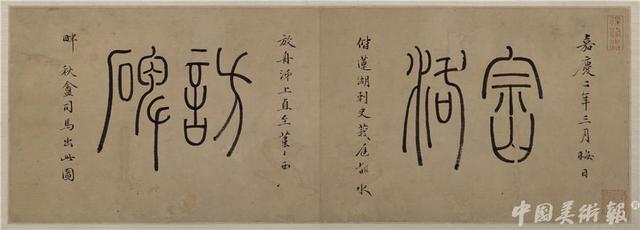 嘉慶二年三月晦日
崈洛
偕蓮湖刺史蓑庵都水
放舟泲上直至西
訪碑
畔秋盦司馬出此圖
中國美術報